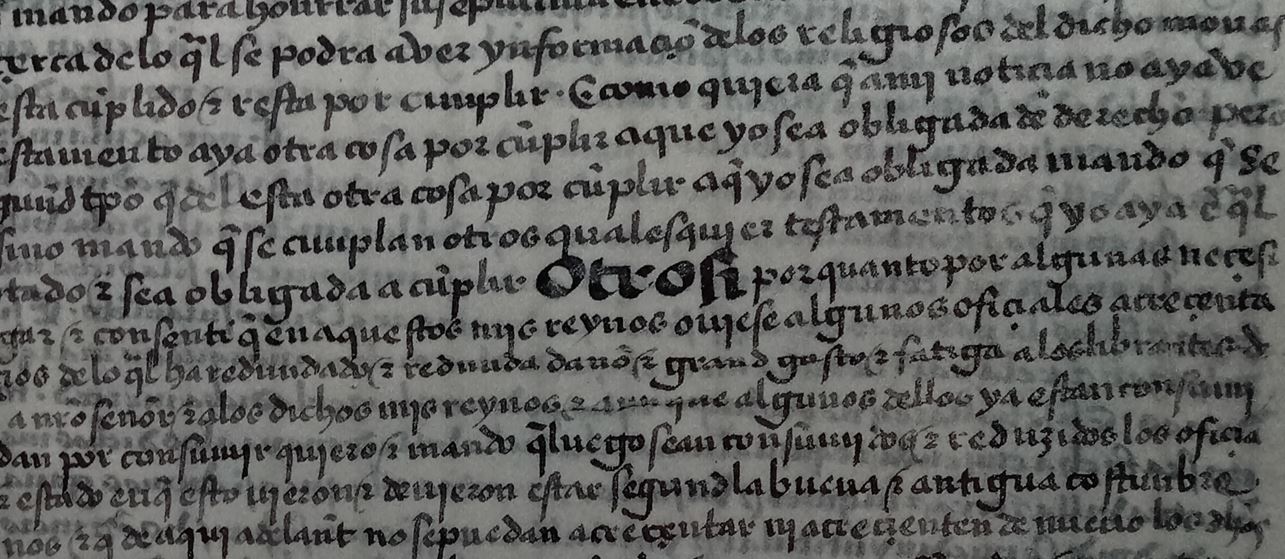 mando para honrrar su sepultura
çerca de lo q̃l se podra aver ynformaçiõ delos religiosos del dicho monas
esta cũplido & resta por cumplir · E como quiera q̃ a mi notiçia no aya ve
estamento aya otra cosa por cũplir a que yo sea obligada de derecho pero
tp̃o q̃ del esta otra cosa por cũplir a q̃ yo sea obligada mando q̃ se
sino mando q̃ se cunplan otros qualesquier testamentos q̃ yo aya
tado & sea obligada a cũplir Otrosi por quanto por algunas neçesi
gar & consenti q̃ en aquestos mis reynos oviese algunos ofiçiales acreçenta
dos de lo q̃l ha redundado & redunda daño & grand gasto & fatiga a los librantes d
a nr̃o señor & a los dichos mis reynos & aun que algunos dellos ya estan consumi
dan por consumir quiero & mando q̃ luego sean consumidos & reduzidos los ofiçia
& estado en q̃ estovieron & devieron estar segund la buena & antigua costunbre
nos & q̃ de aqui adelant̃ no se puedan acreçentar ni acreçienten de nuevo los dhos